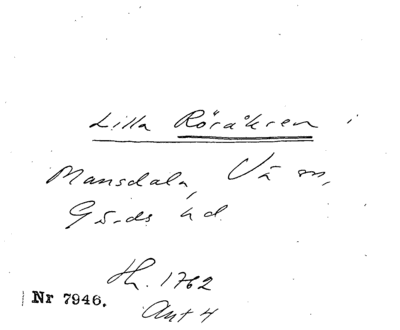 Lilla Röråkren i
Mansdala, Vå sn,
Gärds hd
Hh. 1762
Akt 4
Nr 7946.